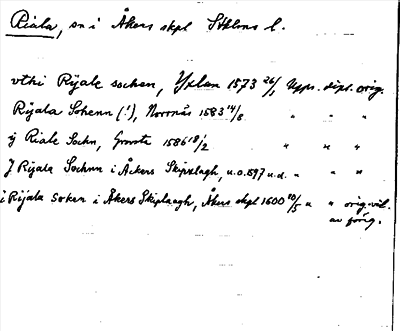 Riala, sn i Åkers skpl Sthlms l.
vthi Rijale socken, Yxlan 1573 26/1 Upps. dipl. orig.
Rijala Sohenn (!), Norrnäs 1583 14/8 " " "
ij Riale Sockn, Gronsta 1586 18/2 " " "
J Rijala Sochnn i Åckers Skipxlagh, u.o. 1597 u.d. " " "
i Rijala Soken i Åkers Skiplaagh, Åkers skpl 1600 10/5 " " orig. väl.
av förig.